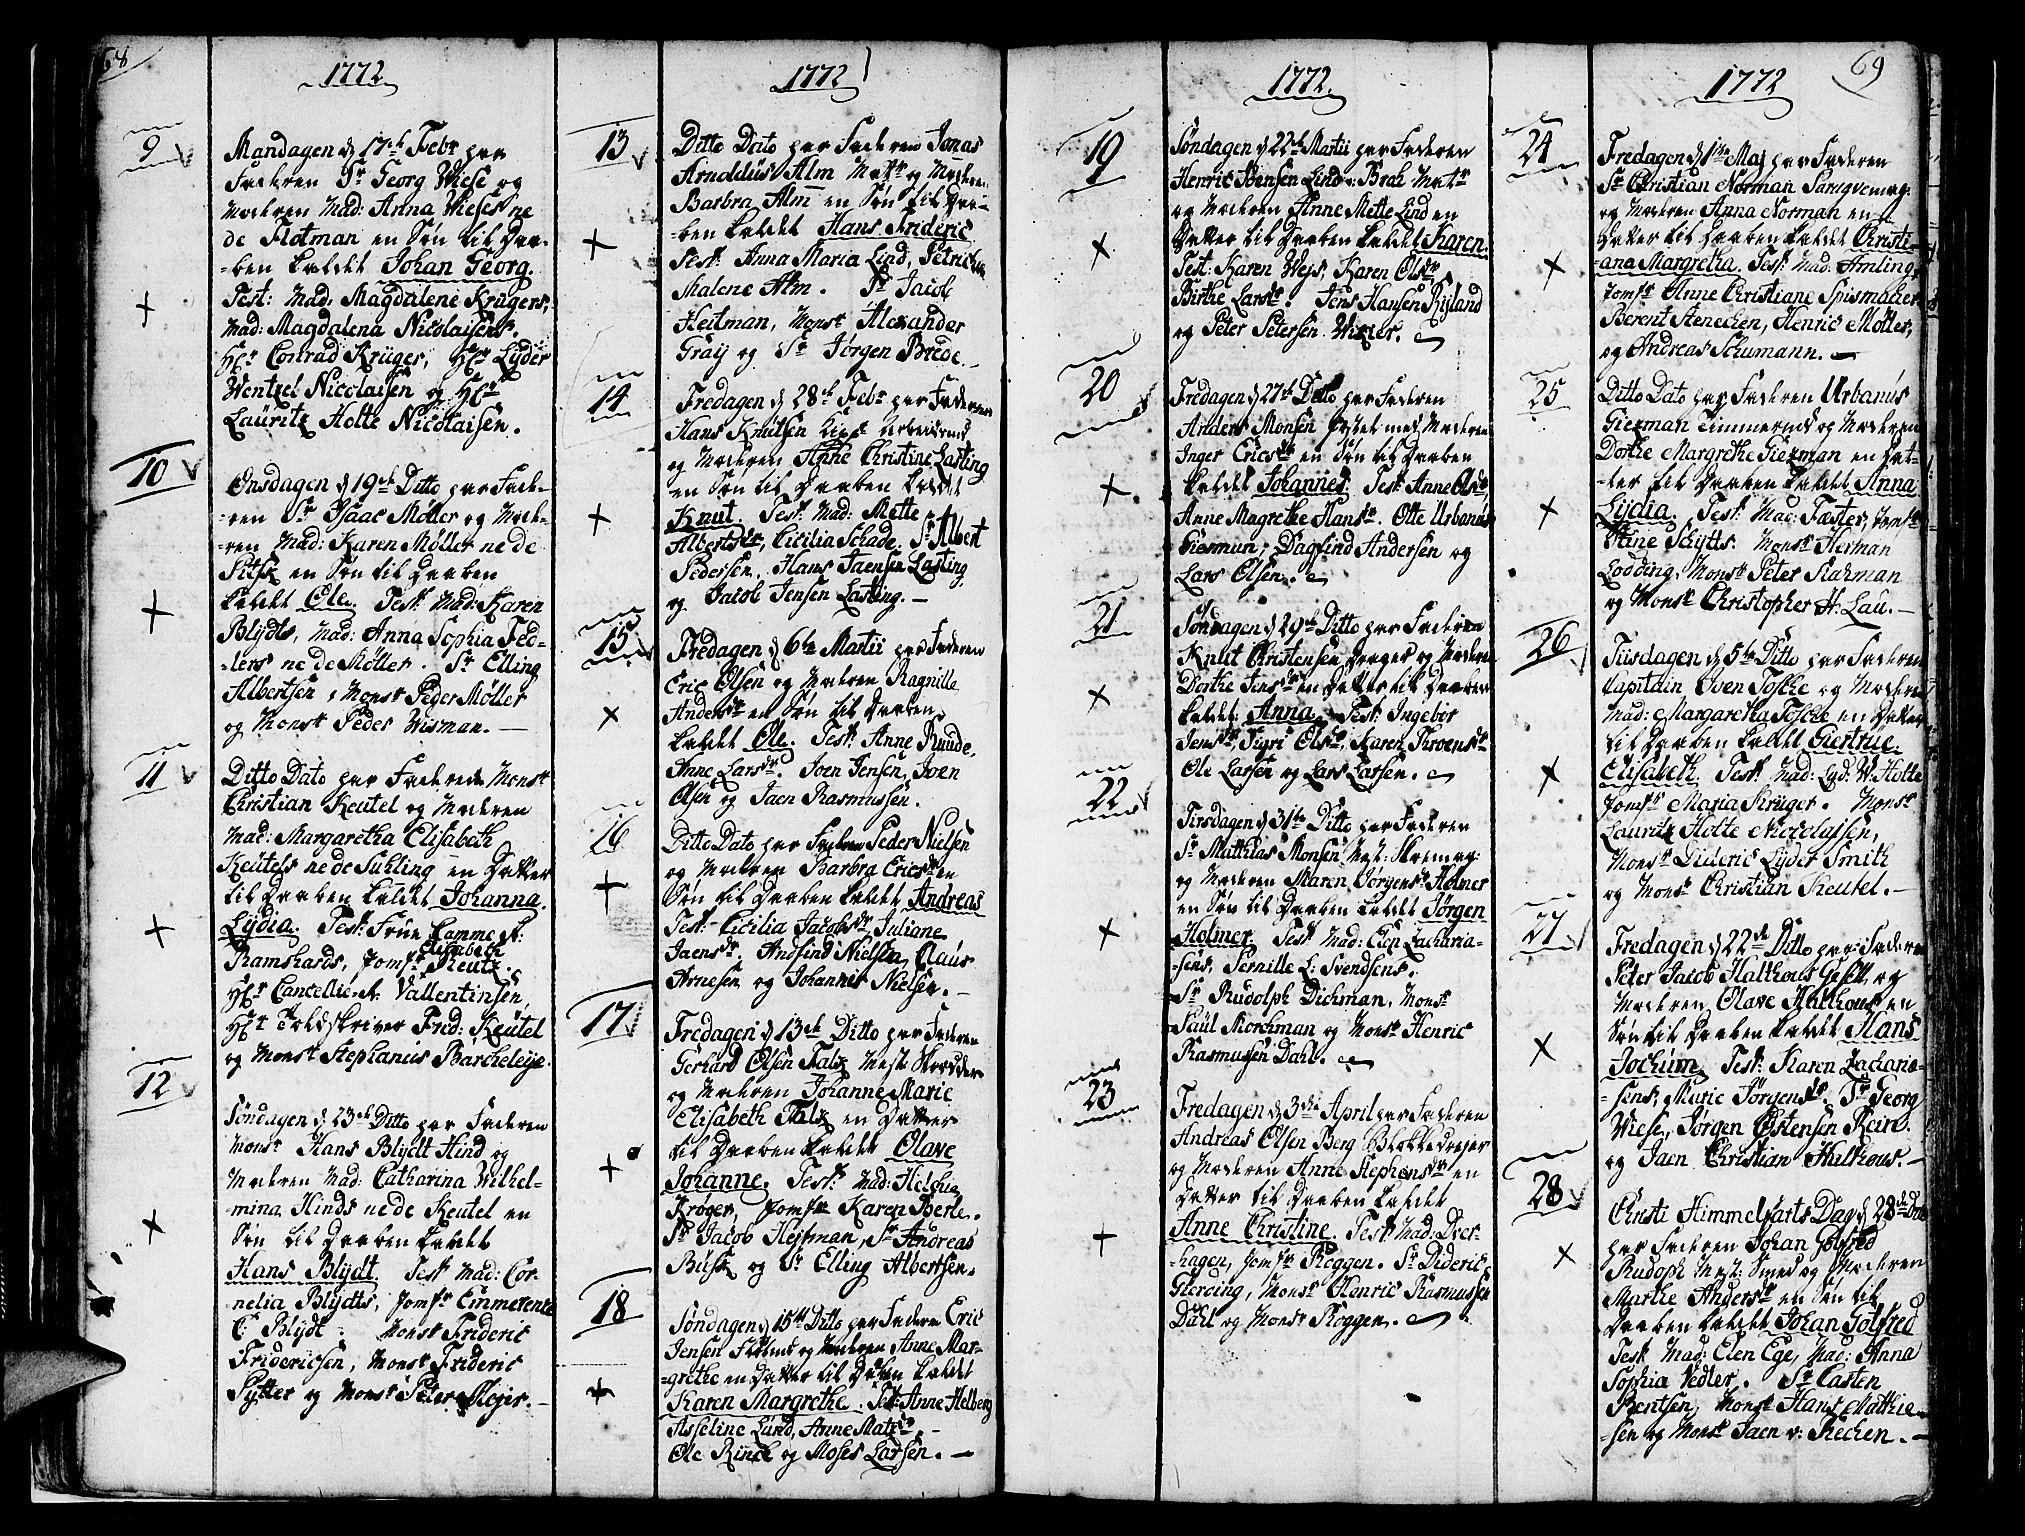 68
1772
9
Mandagen d 17de Febr har
Faderen Sr Georg Wiese og
Moderen Mad: Anna Wieses ne
de Flotman en Søn til Daa-
-ben kaldet Johan Georg.
Test: Mad: Magdalene Krügers,
Mad: Magdalena Nicolaisens.
Hr Conrad Krüger, Hr Lyder
Wentzel Nicolaisen og Hr
Lauritz Holte Nicolaisen.
10
Onsdagen d 19de Ditto har Fade-
-ren Sr Isaac Møller og Mode-
-ren Mad: Karen Møller ne de
en Søn til Daaben
kaldet Ole. Test: Mad: Karen
Blydts, Mad: Anna Sophia Fed-
-lers ne de Møller. Sr Elling
Albertsen, Monsr Peder Møller
og Monsr Peder Wisman.
11
Ditto Dato har Faderen Monsr
Christian Keutel og Moderen
Mad: Margaretha Elisabeth
Keutels ne de Suhling en Datter
til Daaben kaldet Johanna
Lydia. Test: Frue Camme R:
Ramshards, Jomfr Elisabeth Keutz.
Hr Cancellie R. Vallentinsen,
Hr Toldskriver Frid: Keutel
og Monsr Stephanus Barcheleye.
12
Søndagen d 23de Ditto har Faderen
Monsr Hans Blydt Hind og
Moderen Mad: Catharina Wilhel-
mina Hinds ne de Keutel en
Søn til Daaben kaldet
Hans Blydt. Test: Mad: Cor-
nelia Blydts, Jomfr Emmerente
C: Blydt. Monsr Frideric
Friderichsen, Monsr Frideric
Sytter og Monsr Peter Mejer.
1772
13
Ditto Dato har Faderen Jonas
Arnoldus Alm Matr og Moderen
Barbra Alm en Søn til Daa-
-ben kaldet Hans Frideric
Test: Anna Maria Lind, Petri
Malene Alm. Sr Jacob
Heitman, Monsr Alexander
Graij og Sr Jørgen Brede.
14
Fredagen d 28de Febr har Faderen
Hans Knutsen Arbeidsmd
og Moderen Anne Christine Lasting
en Søn til Daaben kaldet
Knut. Test: Mad: Mette
Albertsdr, Cicilia Schade. Sr Albert
Pedersen, Hans Jaensen Lasting,
og Jacob Jensen Lasting.
15
Fredagen d 6te Martii har Faderen
Eric Olsen og Moderen Ragnille
Andersdr en Søn til Daaben
kaldet Ole. Test: Anne Ruude,
Anne Larsdr. Joen Jensen, Joen
Olsen og Jaen Rasmussen.
16
Ditto Dato har Faderen Peder Nielsen
og Moderen Barbra Ericsdr en
Søn til Daaben kaldet Andreas
Test: Cicilia Jacobsdr, Juliane
Jaensdr. Andfind Nielsen, Claus
Arnesen og Johannes Nielsen.
17
Fredagen d 13de Ditto har Faderen
Gerhard Olsen Faltz Mestr Skredder
og Moderen Johanne Marie
Elisabeth Faltz en Datter
til Daaben kaldet Olave
Johanne. Test: Mad: Helchia
Krøger, Jomfr Karen Berle.
Sr Jacob Hejtman, Sr Andreas
Busk og Sr Elling Albertsen.
18
Søndagen d 15de Ditto har Faderen Eric
Jensen og Moderen Anne Mar-
-grethe en Datter til Daaben kaldet
Karen Margrethe. Test: Anne Helberg
Asseline Lund, Anne Matzdr.
Ole Rinck og Moses Larsen.
1772
19
Søndagen d 22de Martii har Faderen
Henric Svensen Lind v: Brok Matr
og Moderen Anne Mette Lind en
Datter til Daaben kaldet Karen.
Test: Karen Wejs, Karen Olsdr
Birthe Larsdr. Jens Hansen Ryland
og Peter Petersen Wixter.
20
Fredagen d 27de Ditto har Faderen
Anders Monsen med Moderen
Inger Ericsdr en Søn til Daaben
kaldet Johannes. Test: Anne Olsdr,
Anne Magrethe Hansdr. Otte Urbanus
Giesmun, Dagfind Andersen og
Lars Olsen.
21
Søndagen d 29de Ditto har Faderen
Knut Christensen Drager og Moderen
Dorthe Jensdr en Datter til Daaben
kaldet Anna. Test: Ingebor
Jensdr, Sigri Olsdr, Karen Troensdr
Ole Larsen og Lars Larsen.
22
Tirsdagen d 31te Ditto har Faderen
Sr Matthias Monsen Mest: Skomag:
og Moderen Maren Jørgensdr Holmer
en Søn til Daaben kaldet Jørgen
Holmer. Test: Mad: Elen Zacharia-
-sens, Pernille L: Svendsens.
Sr Rudolph Dichman, Monsr
Paul Morchman og Monsr Henric
Rasmussen Dahl.
23
Fredagen d 3die April har Faderen
Andreas Olsen Berg Blokkedrejer
og Moderen Anne Stephensdr en
Datter til Daaben kaldet
Anne Christine. Test: Mad: Dver-
-hagen, Jomfr Roggen. Sr Dideric
Giercing, Monsr Henric Rasmussen
Dahl og Monsr Roggen.
69
1772
24
Fredagen d 1te Maj har Faderen
Sr Christian Norman
og Moderen Anna Norman en
Datter til Daaben kaldet Christi-
ana Margretha. Test: Mad: Amling,
Jomfr Anne Christiane Spismacher,
Berent Stenechen, Henric Møller,
og Andreas Schumann.
25
Ditto Dato har Faderen Urbanus
Giezman Timmermd og Moderen
Dorthe Margrethe Giezman en Dat-
-ter til Daaben kaldet Anna
Lydia. Test: Mad: Fæster, Jomfr
Stine Schytts. Monsr Herman
Lodding, Monsr Peter Starman
og Monsr Christopher H: Lau.
26
Tiisdagen d 5te Ditto har Faderen
Capitain Iven Tosche og Moderen
Mad: Margaretha Tosche en Datter
til Daaben kaldet Giertrue
Elisabeth. Test: Mad: Lyd: W: Holte
Jomfr Maria Krüger. Monsr
Lauritz Holte Nicolaisen,
Monsr Dideric Lyder Smith
og Monsr Christian Keutel.
27
Fredagen d 22de Ditto har Faderen
Peter Jacob Halthous Gesell og
Moderen Olave Halthous en
Søn til Daaben kaldet Hans
Jochum. Test: Karen Zacharia-
-sens, Marie Jørgensdr. Sr Georg
Wiese, Jørgen Østensen Rein.
og Jaen Christian Halthous.
28
Christi Himmelfarts Dag d 28de Dito
har Faderen Johan Golfred
Rudoph Mest: Smed og Moderen
Marthe Andersdr en Søn til
Daaben kaldet Johan Golfred
Test: Mad: Elen Ege, Mad: Anna
Sophia Vedler. Sr Casten
Bentsen, Monsr Hans Mathie-
sen og Monsr Jaen v: Rechen.